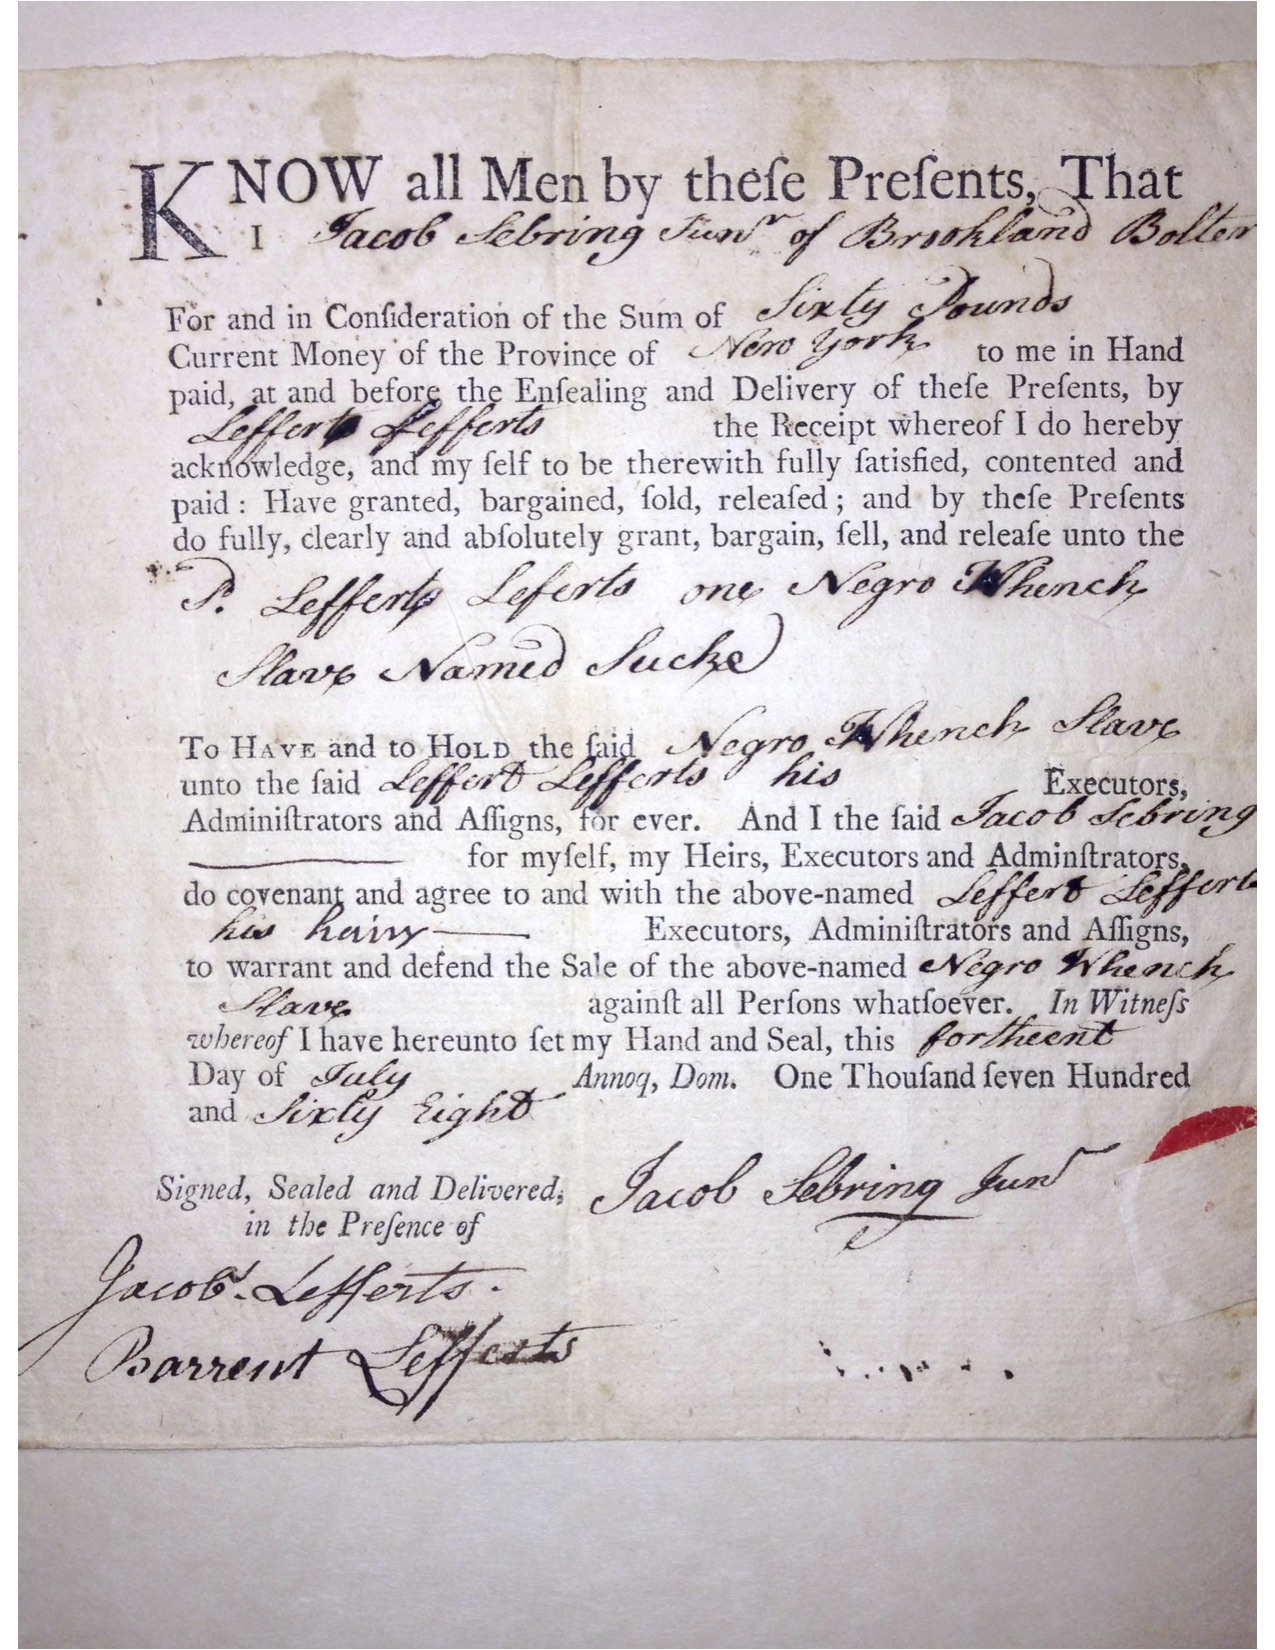 KNOW all Men by theſe Preſents, That
I Jacob Sebring Junr of Brookland Bolter
For and in Conſideration of the Sum of Sixty Pounds
Current Money of the Province of New York to me in Hand
paid, at and before the Enſealing and Delivery of theſe Preſents, by
Leffert Lefferts the Receipt whereof I do hereby
acknowledge, and my ſelf to be therewith fully ſatisfied, contented and
paid: Have granted, bargained, ſold, releaſed; and by theſe Preſents
do fully, clearly and abſolutely grant, bargain, ſell, and releaſe unto the
S. Leffert Leferts one Negro Whench
Slave Named Sucke
To HAVE and to HOLD the ſaid Negro Whench Slave
unto the ſaid Leffert Lefferts his Executors,
Adminiſtrators and Aſſigns, for ever. And I the ſaid Jacob Sebring
for myſelf, my Heirs, Executors and Adminſtrators,
do covenant and agree to and with the above-named Leffert Leffert
his heirs Executors, Adminiſtrators and Aſſigns,
to warrant and defend the Sale of the above-named Negro Whench
Slave againſt all Perſons whatſoever. In Witneſs
whereof I have hereunto ſet my Hand and Seal, this fortheent
Day of July Annoq, Dom. One Thouſand ſeven Hundred
and Sixty Eight
Signed, Sealed and Delivered, Jacob Sebring Junr
in the Preſence of
Jacobs. Lefferts.
Barrent Lefferts